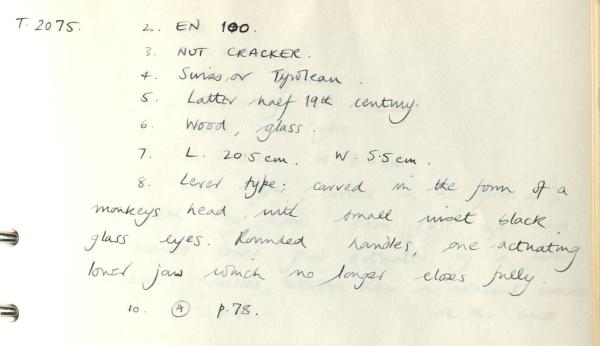 T. 2075. 2. EN 100.
3. NUT CRACKER.
4. Swiss or Tyrolean.
5. Latter half 19th century.
6. Wood, glass.
7. L. 20.5cm. W. 5.5cm.
8. Lever type; carved in the form of a
monkeys head, with small inset black
glass eyes. Rounded handles, one actuating
lower jaw which no longer closes fully.
10. A p.78.